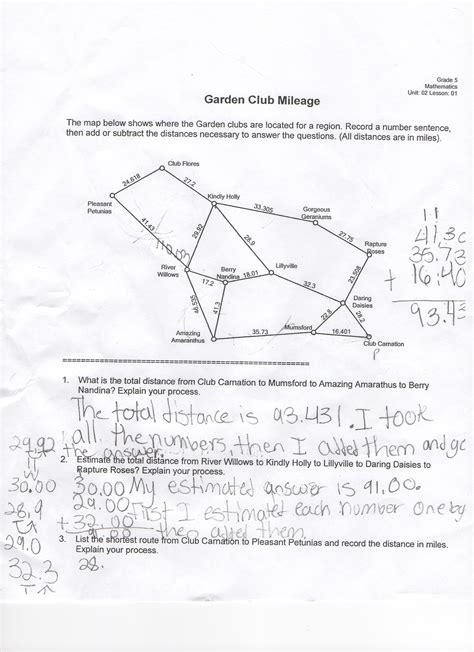 Grade 5
Mathematics
Unit: 02 Lesson: 01
Garden Club Mileage
The map below shows where the Garden clubs are located for a region. Record a number sentence,
then add or subtract the distances necessary to answer the questions. (All distances are in miles).
Club Flores
24.618
27.2
Kindly Holly
Pleasant
Petunias
33.305
Gorgeous
Geraniums
41.43
29.92
28.9
27.75
Rapture
Roses
River
Willows
Berry
Nandina
18.01
Lillyville
17.2
32.3
23.508
Daring
Daisies
41.3
22.8
28.2
Amazing
Amaranthus
35.73
Mumsford
16.401
Club Carnation
P
11
41.30
35.73
+ 16.40
93.43
1. What is the total distance from Club Carnation to Mumsford to Amazing Amarathus to Berry
Nandina? Explain your process.
The total distance is 93.431. I took
all the numbers then I added them and go
the answer.
2. Estimate the total distance from River Willows to Kindly Holly to Lillyville to Daring Daisies to
Rapture Roses? Explain your process.
29.92
30.00
28.9
29.0
32.3
30.00 My estimated answer is 91.00.
29.00 First I estimated each number one by
+ 32.00 then added them.
3. List the shortest route from Club Carnation to Pleasant Petunias and record the distance in miles.
Explain your process.
28.